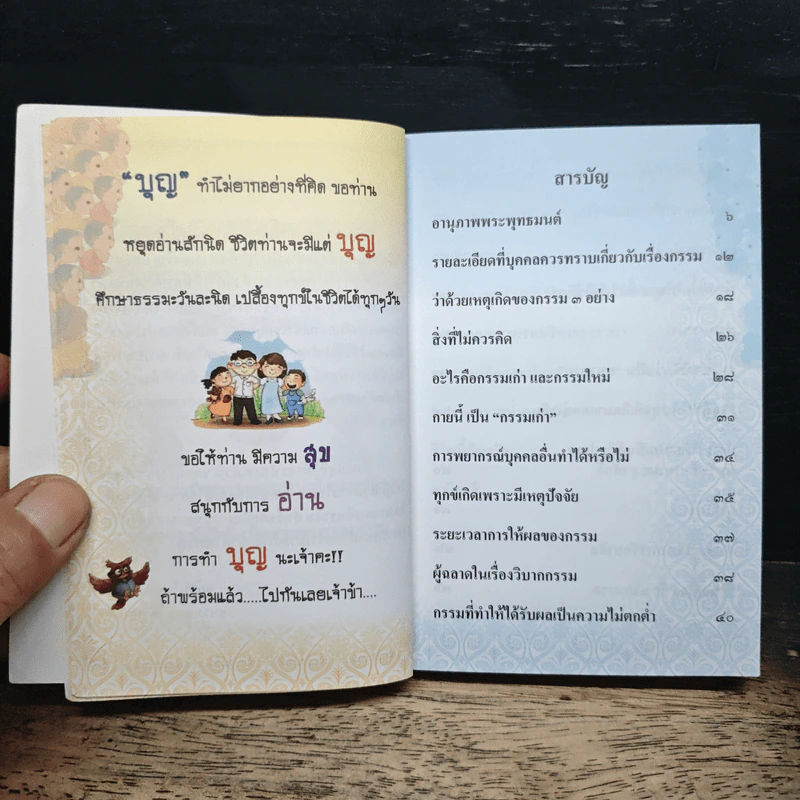 “บุญ” ทำไม่ยากอย่างที่คิด ขอท่าน
หยุดอ่านสักนิด ชีวิตท่านจะมีแต่ บุญ
ศึกษาธรรมะวันละนิด เปลื้องทุกข์ในชีวิตได้ทุกๆวัน
ขอให้ท่าน มีความ สุข
สนุกกับการ อ่าน
การทำ บุญ นะเจ้าคะ!!
ถ้าพร้อมแล้ว.....ไปกันเลยเจ้าข้า....
สารบัญ
อานุภาพพระพุทธมนต์ ๖
รายละเอียดที่บุคคลควรทราบเกี่ยวกับเรื่องกรรม ๑๒
ว่าด้วยเหตุเกิดของกรรม ๓ อย่าง ๑๘
สิ่งที่ไม่ควรคิด ๒๖
อะไรคือกรรมเก่า และกรรมใหม่ ๒๘
กายนี้ เป็น “กรรมเก่า” ๓๑
การพยากรณ์บุคคลอื่นทำได้หรือไม่ ๓๔
ทุกข์เกิดเพราะมีเหตุปัจจัย ๓๕
ระยะเวลาการให้ผลของกรรม ๓๗
ผู้ฉลาดในเรื่องวิบากกรรม ๓๘
กรรมที่ทำให้ได้รับผลเป็นความไม่ตกต่ำ ๔๐